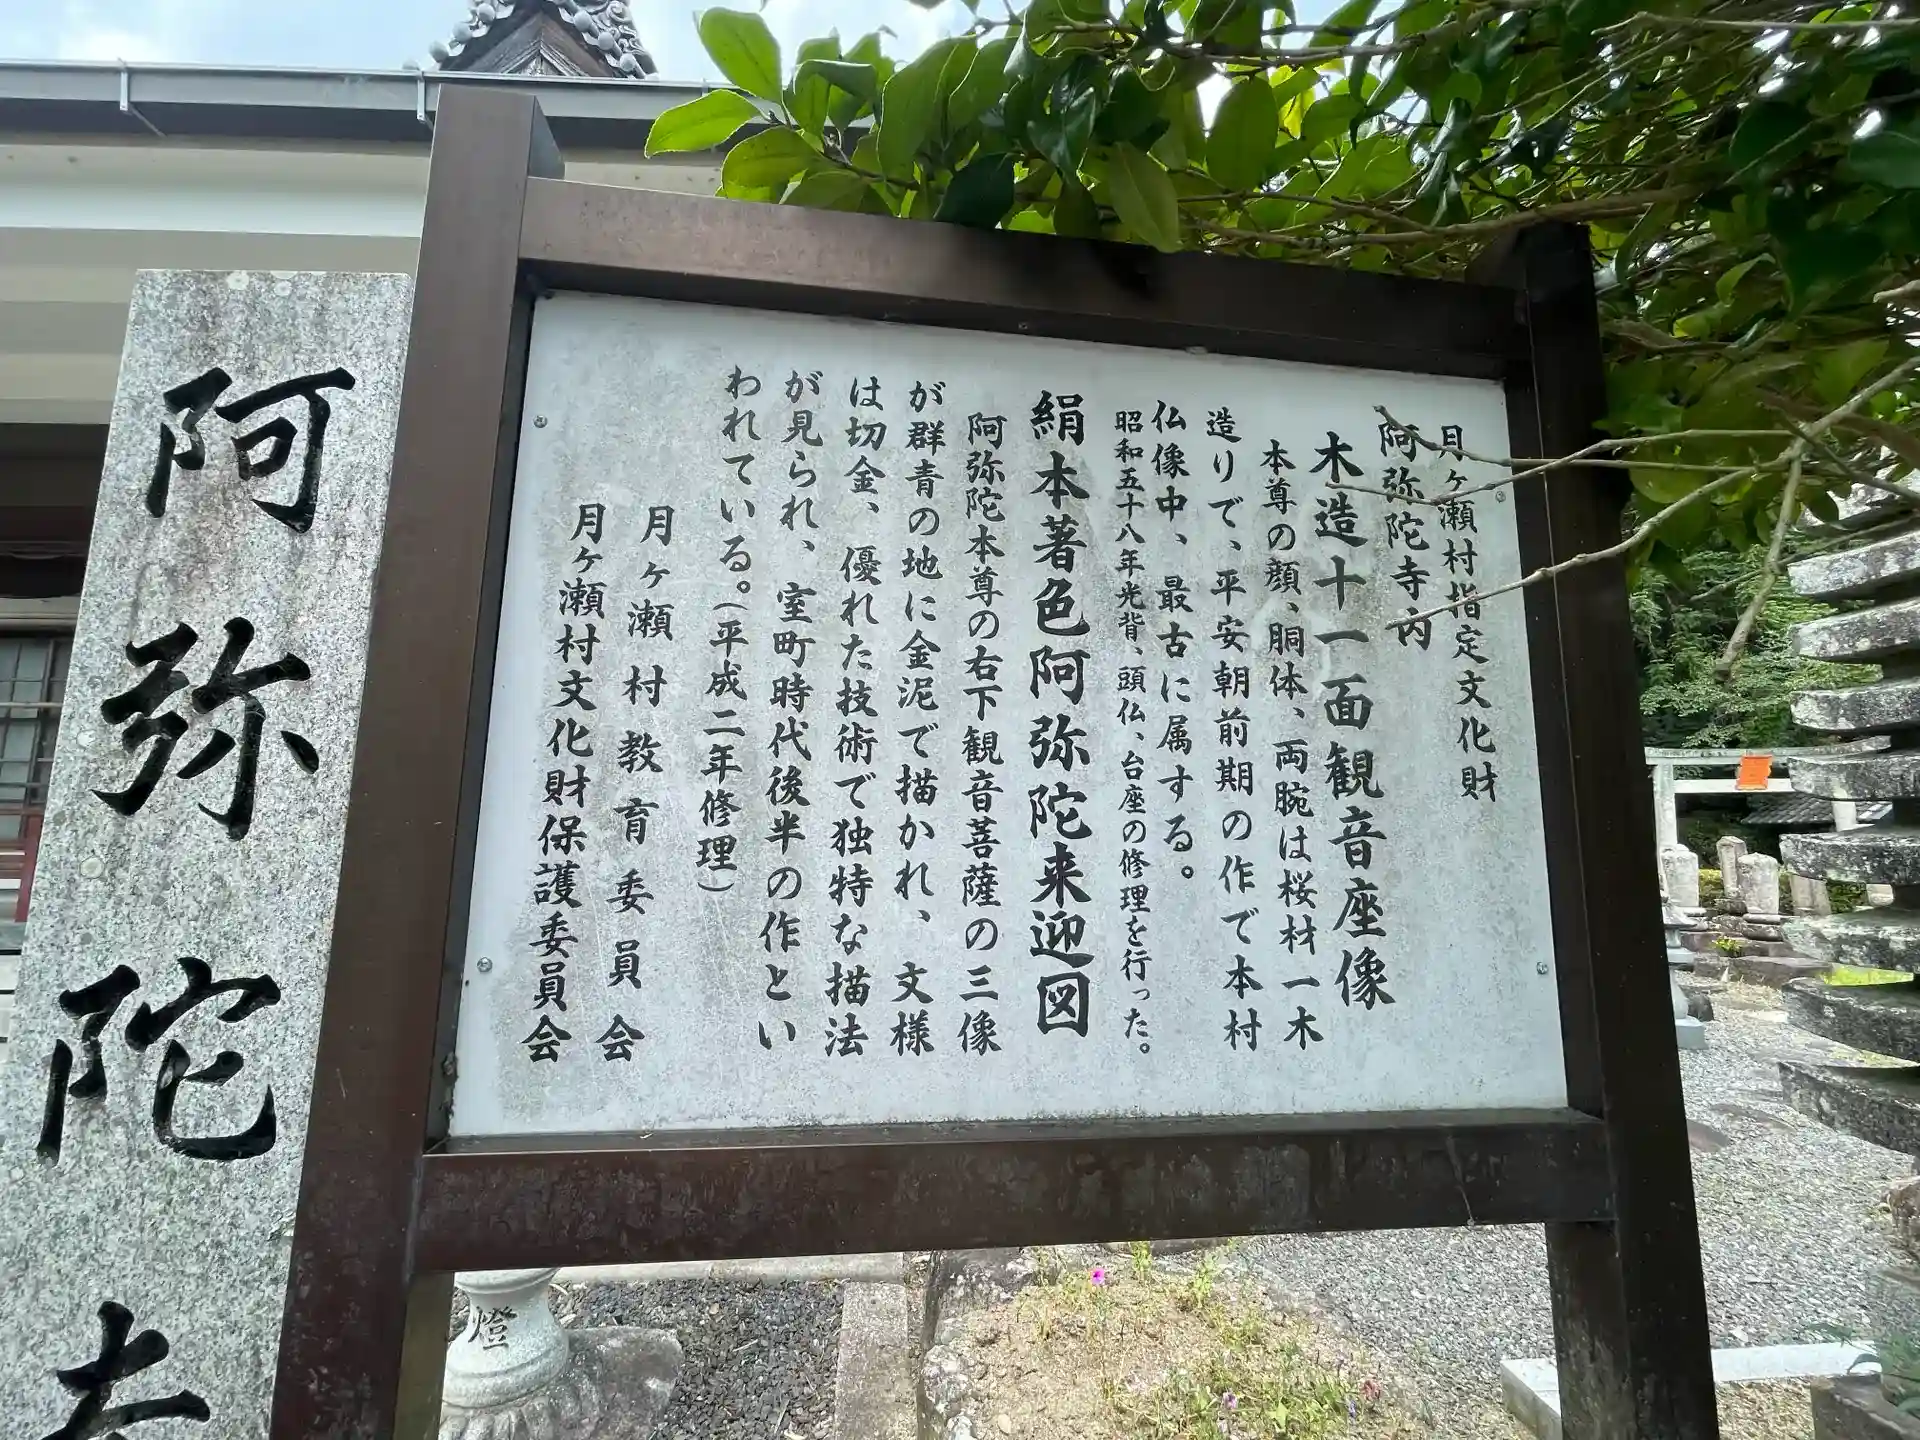 月ヶ瀬村指定文化財
阿弥陀寺内
木造十一面観音座像
本尊の顔、胴体、両腕は桜材一木
造りで、平安朝前期の作で本村
仏像中、最古に属する。
昭和五十八年光背、頭仏、台座の修理を行った。
絹本著色阿弥陀来迎図
阿弥陀本尊の右下観音菩薩の三像
が群青の地に金泥で描かれ、文様
は切金、優れた技術で独特な描法
が見られ、室町時代後半の作とい
われている。(平成二年修理)
月ヶ瀬村教育委員会
月ヶ瀬村文化財保護委員会
阿弥陀寺
燈